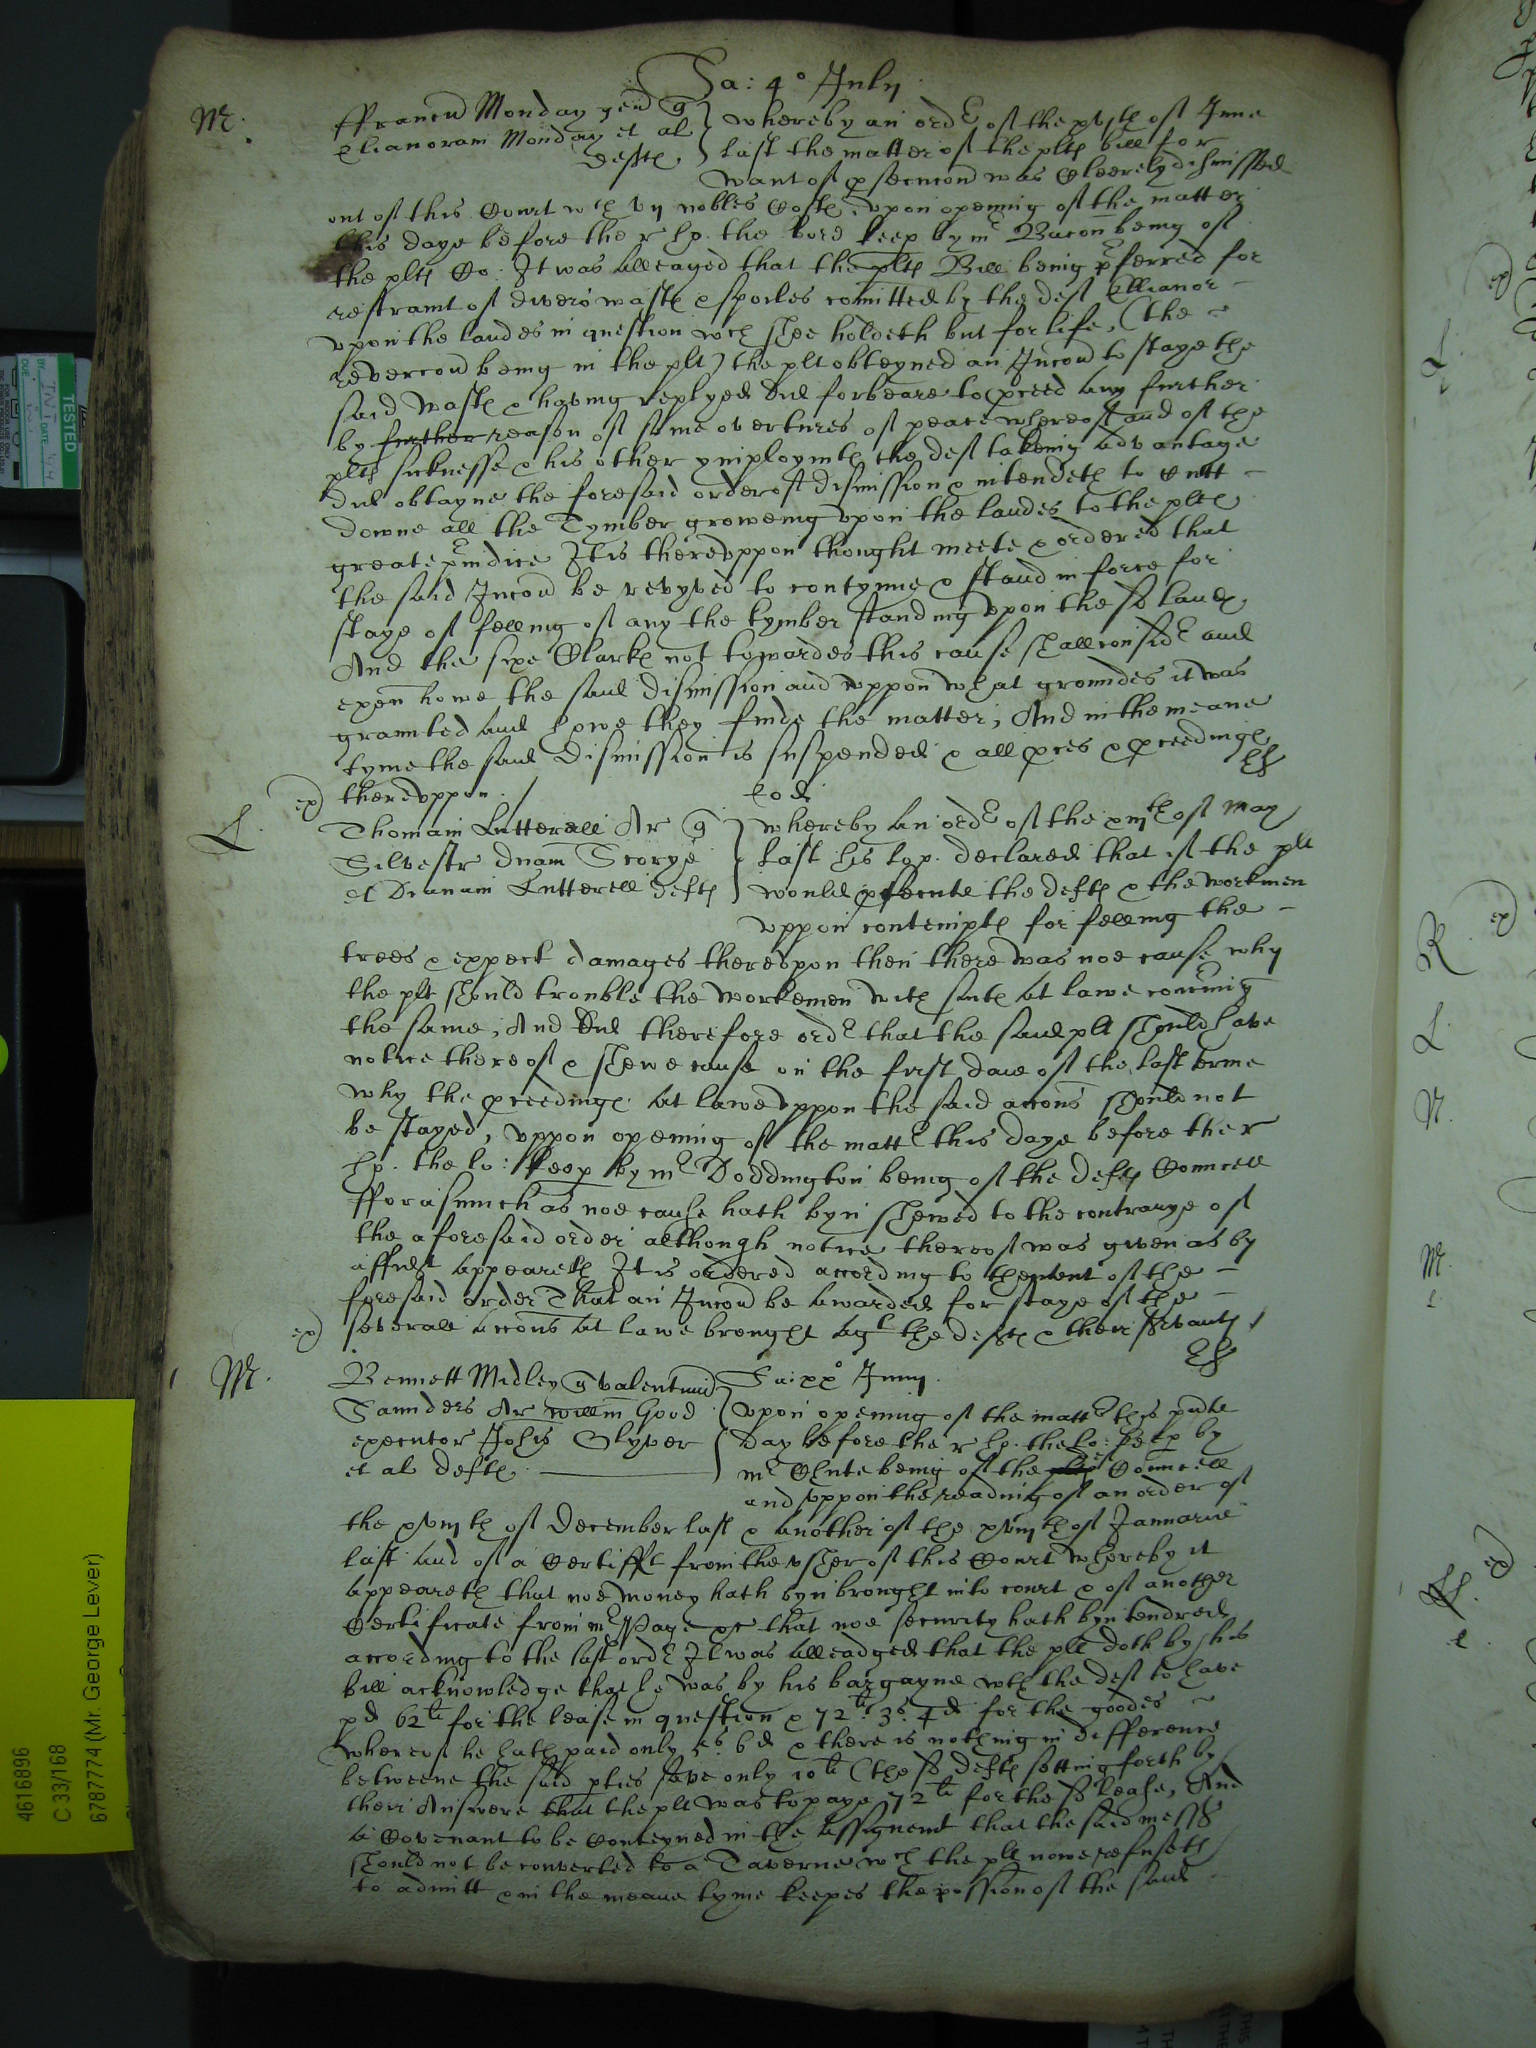 Sa: 4° July
M.
ffrancũ Monday gen q
Elianoram Monday et al
deftℯ
whereby an ordʳ of the xvjth of June
last the matter of the pltℯ bill for
want of psecucon was cleerely dismissed
out of this Court wch vij nobles Costℯ, vpon openinge of the matter
this daye before the r hp. the lord keep by mʳ Bacon being of
the pltℯ Co. It was alleaged that the pltℯ Bill being pferred for
restraint of divers wastℯ & spoiles comitted by the deft Ellianor
vpon the landes in question wch shee holdeth but for life, (the
revercon being in the plt) the plt obteyned an Iniucon to staye the
said wastℯ & having replyed did forbeare to pceed any further
by further reason of some overtures of peace whereof and of the
pltℯ sicknesse & his other ymploymtℯ the deft takeing advantage
did obtayne the foresaid order of dismission & intendeth to Cutt
downe all the Tymber groweing vpon the landes to the pltℯ
greate piudice It is therevppon thought meete & ordered that
the said Iniucon be revyved to contynue & stand in force for
staye of felling of any the tymber standing vpon the sd landℯ
And the sixe Clarkℯ not towardes this cause shall considʳ and
exam howe the said dismission and vppon what groundes it was
graunted and howe they finde the matter, And in the meane
tyme the said dismission is suspended & all pces & pceedingℯ
therevppon.
ex)
L.
Eod
Thomam Lutterell Ar q
Silvestr dnam Scorye
et Dianam Lutterell deftℯ
whereby an ordʳ of the xiijth of May
last his lop. declared that if the plt
would psecute the deftℯ & the workmen
vppon contemptℯ for felling the
trees & expect damages therevpon then there was noe cause why
the plt should trouble the workemen with sutℯ at lawe concning
the same, And did therefore ordʳ that the said plt should have
notice thereof & shewe cause on the first daie of the last terme
why the pceedingℯ at lawe vppon the said accons should not
be stayed, vppon opening of the mattʳ this daye before the r
hp. the lo: keep by mʳ Doddington being of the deftℯ Councell
fforasmuch as noe cause hath byn shewed to the contrarye of
the aforesaid order although notice thereof was given as by
affidt appeareth It is ordered according to thentent of the
foresaid order That an Iniucon be awarded for staye of the
severall accons at lawe brought agt the deftℯ & their servantℯ
ex)
M.
Bennett Midley q valentinũ
Saunders Ar willm Good
executor Johis Olyver
et al deftℯ
Sa: xx° Junij.
vpon opening of the mattʳ this pnte
day before the r hp. the lo: keep by
mʳ Chute being of the pltℯ Councell
and vppon the reading of an order of
the xviijth of December last & another of the xviijth of Januarie
last and of a Certifft from the vsher of this Court whereby it
appeareth that noe money hath byn brought into court & of another
Certificate from mʳ Page &c that noe security hath byn tendred
according to the last ordʳ It was alleadged that the plt doth by his
bill acknowledge that he was by his bargayne wth the deft to have
pd 62li for the lease in question & 72li 3s. 4d for the goodes
whereof he hath paid only 5s. 6d & there is nothing in difference
betweene the said pties save only 10li (the sd deftℯ setting forth by
their Answere that the plt was to paye 72li for the sd lease, And
a Covenant to be Conteyned in the assignemt that the said messe
should not be converted to a Taverne wch the plt nowe refuseth
to admitt & in the meane tyme keepes the possion of the said
TESTED
4616896
C 33/168
67877774 (Mr. George Lever)